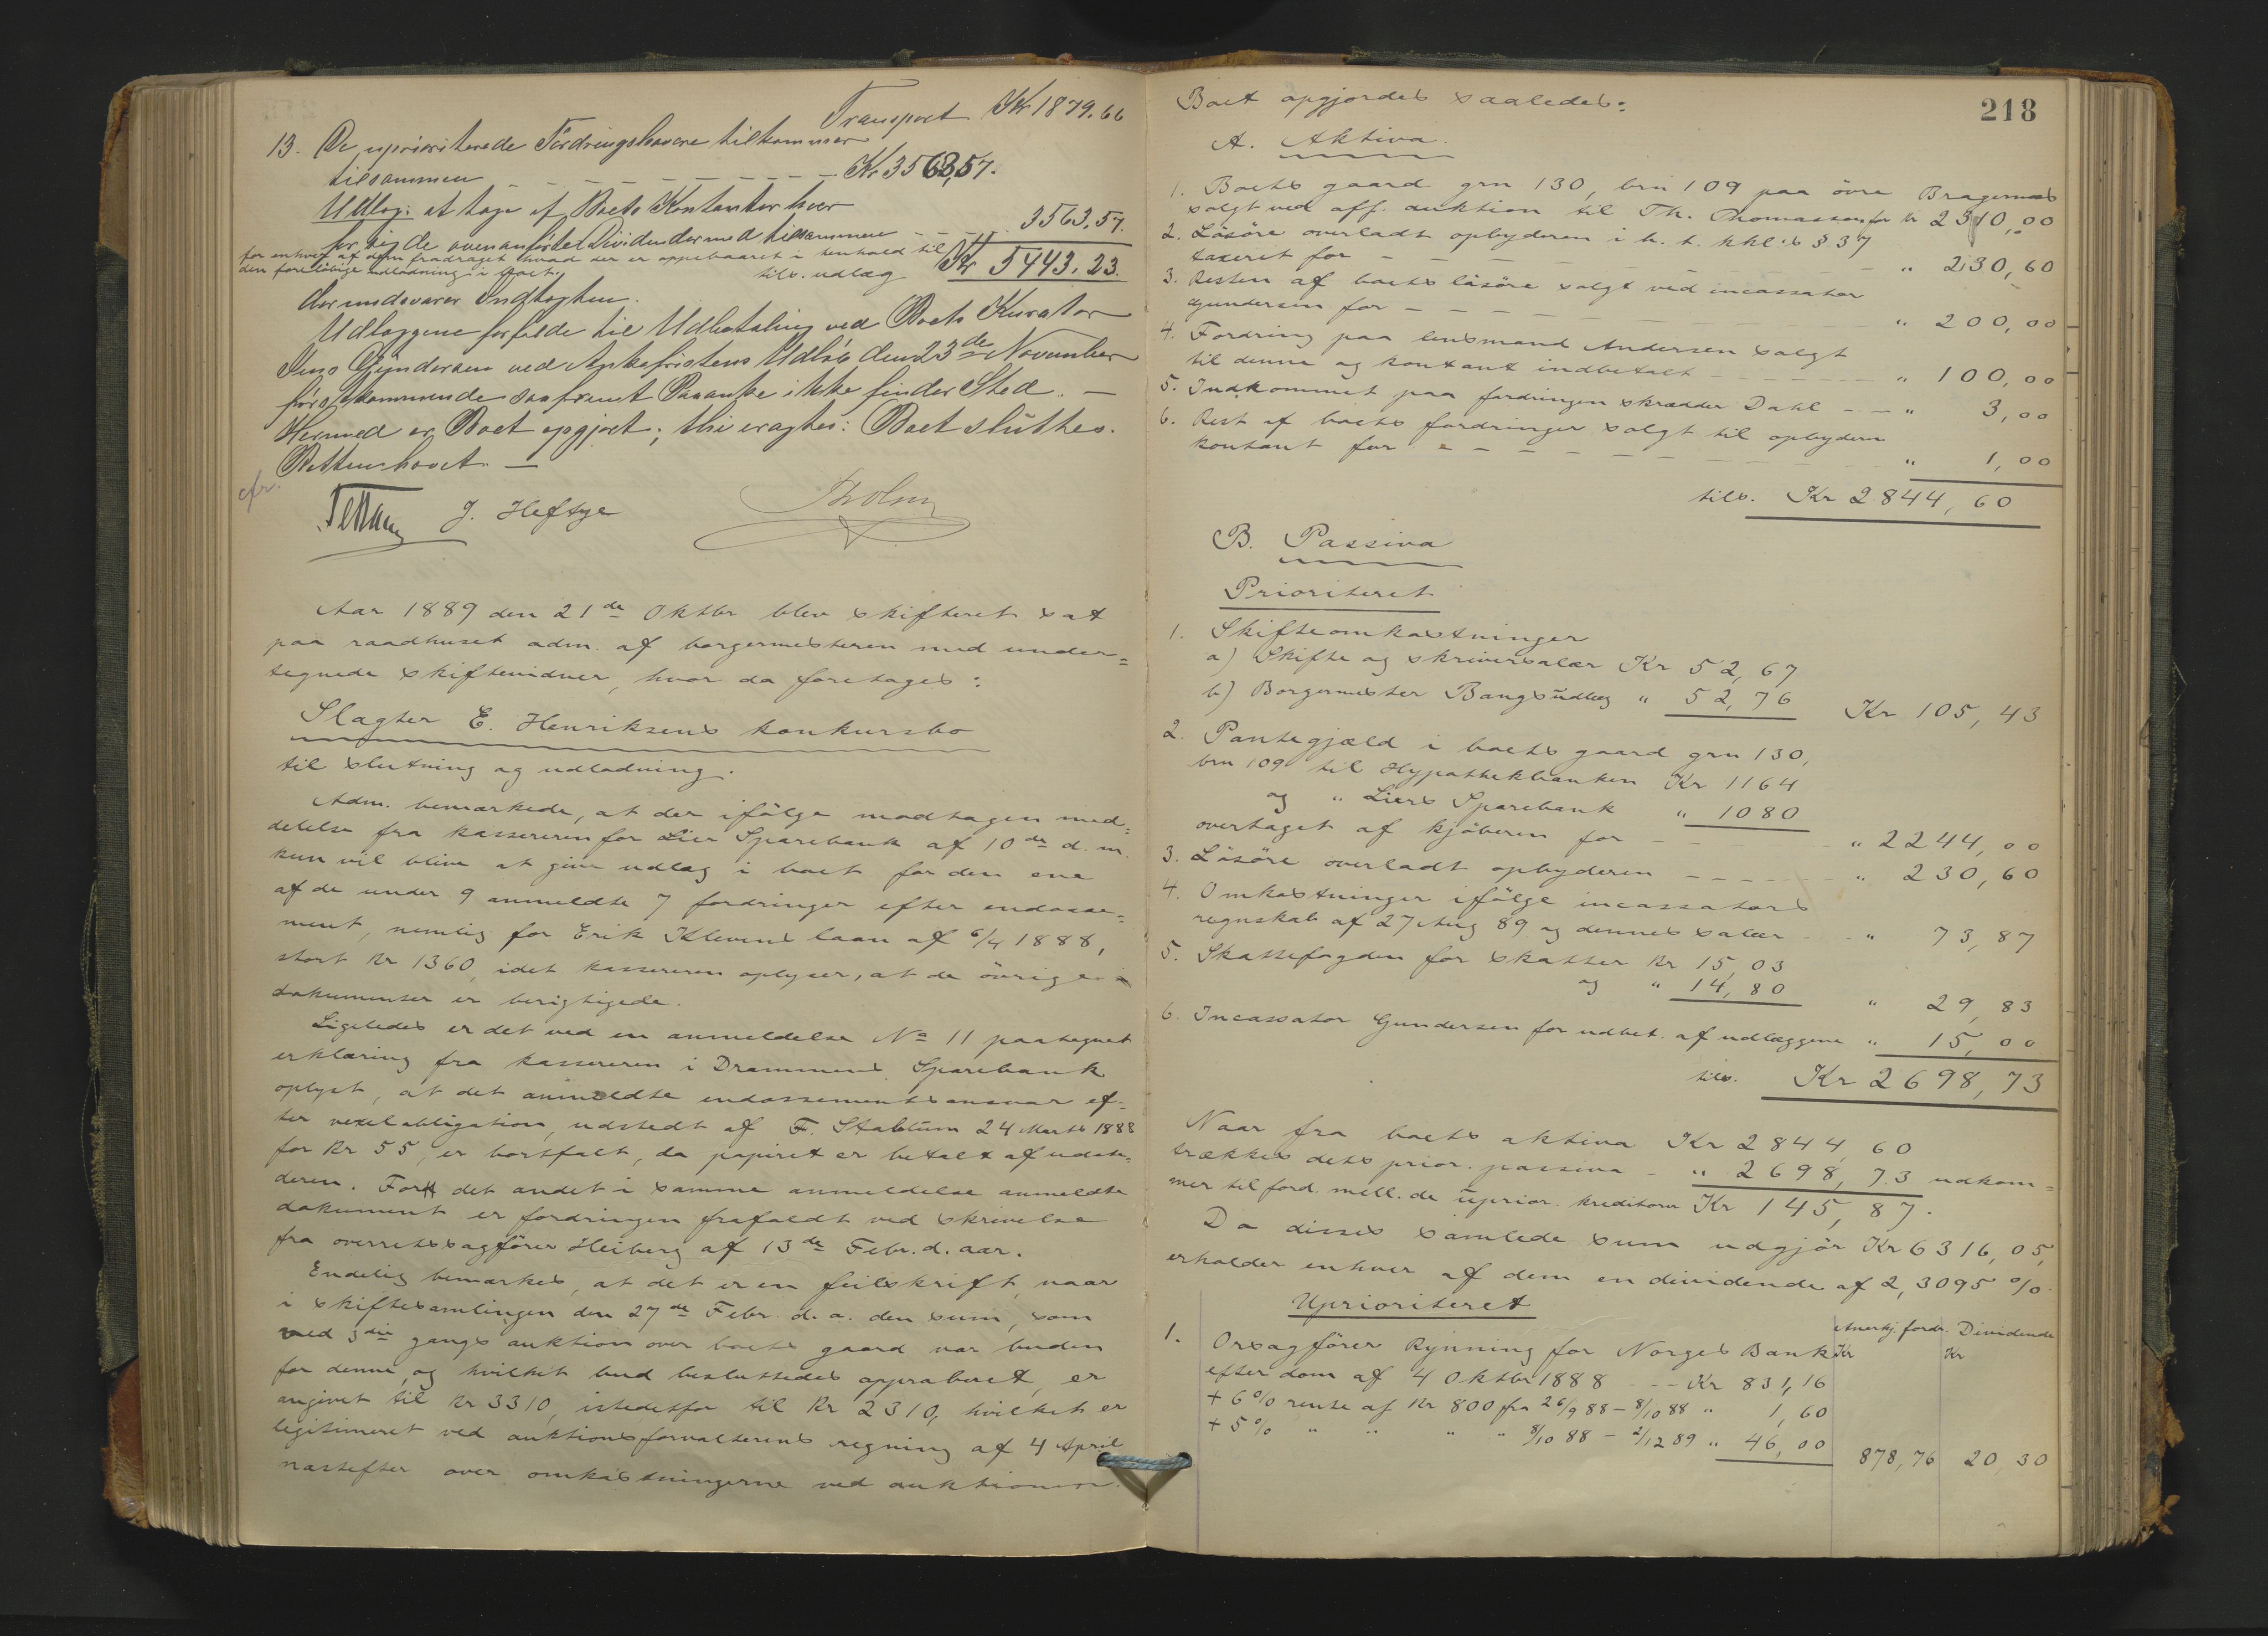 Transport Kr 1879.66
13. De uprioriterede Fordringshavere tilkommer
tilsammen - - - - - - - - - Kr 3563,57.
Udlæg: at tage af Boets Kontanter hver
for sig de ovenanførte Dividender med tilsammen - - 3563,57.
for enhver af dem fradraget hvad der er oppebaaret i henhold til
den foreløbige udlodning i boet.
tils. udlæg Kr 5443.23.
der undsvarer Indtægten.
Udlæggene forfalde til Udbetaling ved Boets Kurator
Jens Gundersen ved Ankefristens Udløb den 23de November
førstkommende saafremt Paaanke ikke finder Sted. —
Hermed er Boet opgjort; thi eragtes: Boet sluttes.
Retten hævet. —
cfr.
J. Heftye
Aar 1889 den 21de Oktbr blev skifteret sat
paa raadhuset adm. af borgermesteren med under=
tegnede skiftevidner, hvor da foretages:
Slagter E. Henriksens konkursbo
til slutning og udlodning.
Adm. bemærkede, at der ifølge modtagen med=
delelse fra kassereren for Lier Sparebank af 10de d. m.
kun vil blive at give udlæg i boet for den ene
af de under 9 anmeldte 7 fordringer efter endosse=
ment, nemlig for Erik Klevens laan af 6/4 1888,
stort Kr 1360, idet kassereren oplyser, at de øvrige
dokumenter er berigtigede.
Ligeledes er det ved en anmeldelse No 11 paategnet
erklæring fra kassereren i Drammens Sparebank
oplyst, at det anmeldte endossementsansvar ef=
ter vexelobligation, udstedt af F. Stabtum 24 Marts 1888
for Kr 55, er bortfalt, da papiret er betalt af udste=
deren. For det andet i samme anmeldelse anmeldte
dokument er fordringen frafaldt ved skrivelse
fra overretssagfører Heiberg af 13de Febr. d. aar.
Endelig bemærkes, at det er en feilskrift, naar
i skiftesamlingen den 27de Febr. d. a. den sum, som
ved 3die gangs auktion over boets gaard var buden
for denne, og hvilket bud besluttedes approberet, er
angivet til Kr 3310, istedetfor til Kr 2310, hvilket er
legitimeret ved auktionsforvalterens regning af 4 April
næstefter over omkostningerne ved auktionen.
218
Boet opgjordes saaledes:
A. Aktiva.
1. Boets gaard grn 130, brn 109 paa övre Bragernæs
solgt ved off. auktion til Th. Thomassen for kr 2310,00
2. Lösöre overladt opbyderen i h. t. kkl.s § 37
taxeret for - - - - - - - " 230,60
3. Resten af boets lösöre solgt ved incassator
Gundersen for - - - - - - - - " 200,00
4. Fordring paa lensmand Andersen solgt
til denne og kontant indbetalt - - - - " 100,00
5. Indkommet paa fordringen skrædder Dahl - - " 3,00
6. Rest af boets fordringer solgt til opbyderen
kontant for - - - - - - - " 1,00
tils. Kr 2844,60
B. Passiva
Prioriteret
1. Skifteomkostninger
a) Skifte og skriversalær Kr 52,67
b) Borgermester Bangs udlæg " 52,76 Kr 105,43
2. Pantegjæld i boets gaard grn 130,
brn 109 til Hypothekbanken Kr 1164
og " Liers Sparebank " 1080
overtaget af kjöberen for - - - " 2244,00
3. Lösöre overladt opbyderen - - - - " 230,60
4. Omkostninger ifölge incassators
regnskab af 27 Aug 89 og dennes salær - - " 73,87
5. Skattefogden for skatter Kr 15,03
og " 14,80 " 29,83
6. Incassator Gundersen for udbet. af udlæggene " 15,00
tils. Kr 2698,73
Naar fra boets aktiva Kr 2844,60
trækkes dets prior. passiva - " 2698,73 udkom=
mer til ford. mell. de uprior. kreditorer Kr 145,87.
Da disses samlede sum udgjör Kr 6316,05,
erholder enhver af dem en dividende af 2,3095 %.
Uprioriteret
Anerkj. fordr. Dividende
1. Orsagförer Rynning for Norges Bank Kr Kr
efter dom af 4 Oktbr 1888 - - - Kr 831,16
+ 6 % rente af Kr 800 fra 26/9 88 - 8/10 88 " 1,60
+ 5 % " " " " 8/10 88 - 2/12 89 " 46,00 878,76 20,30